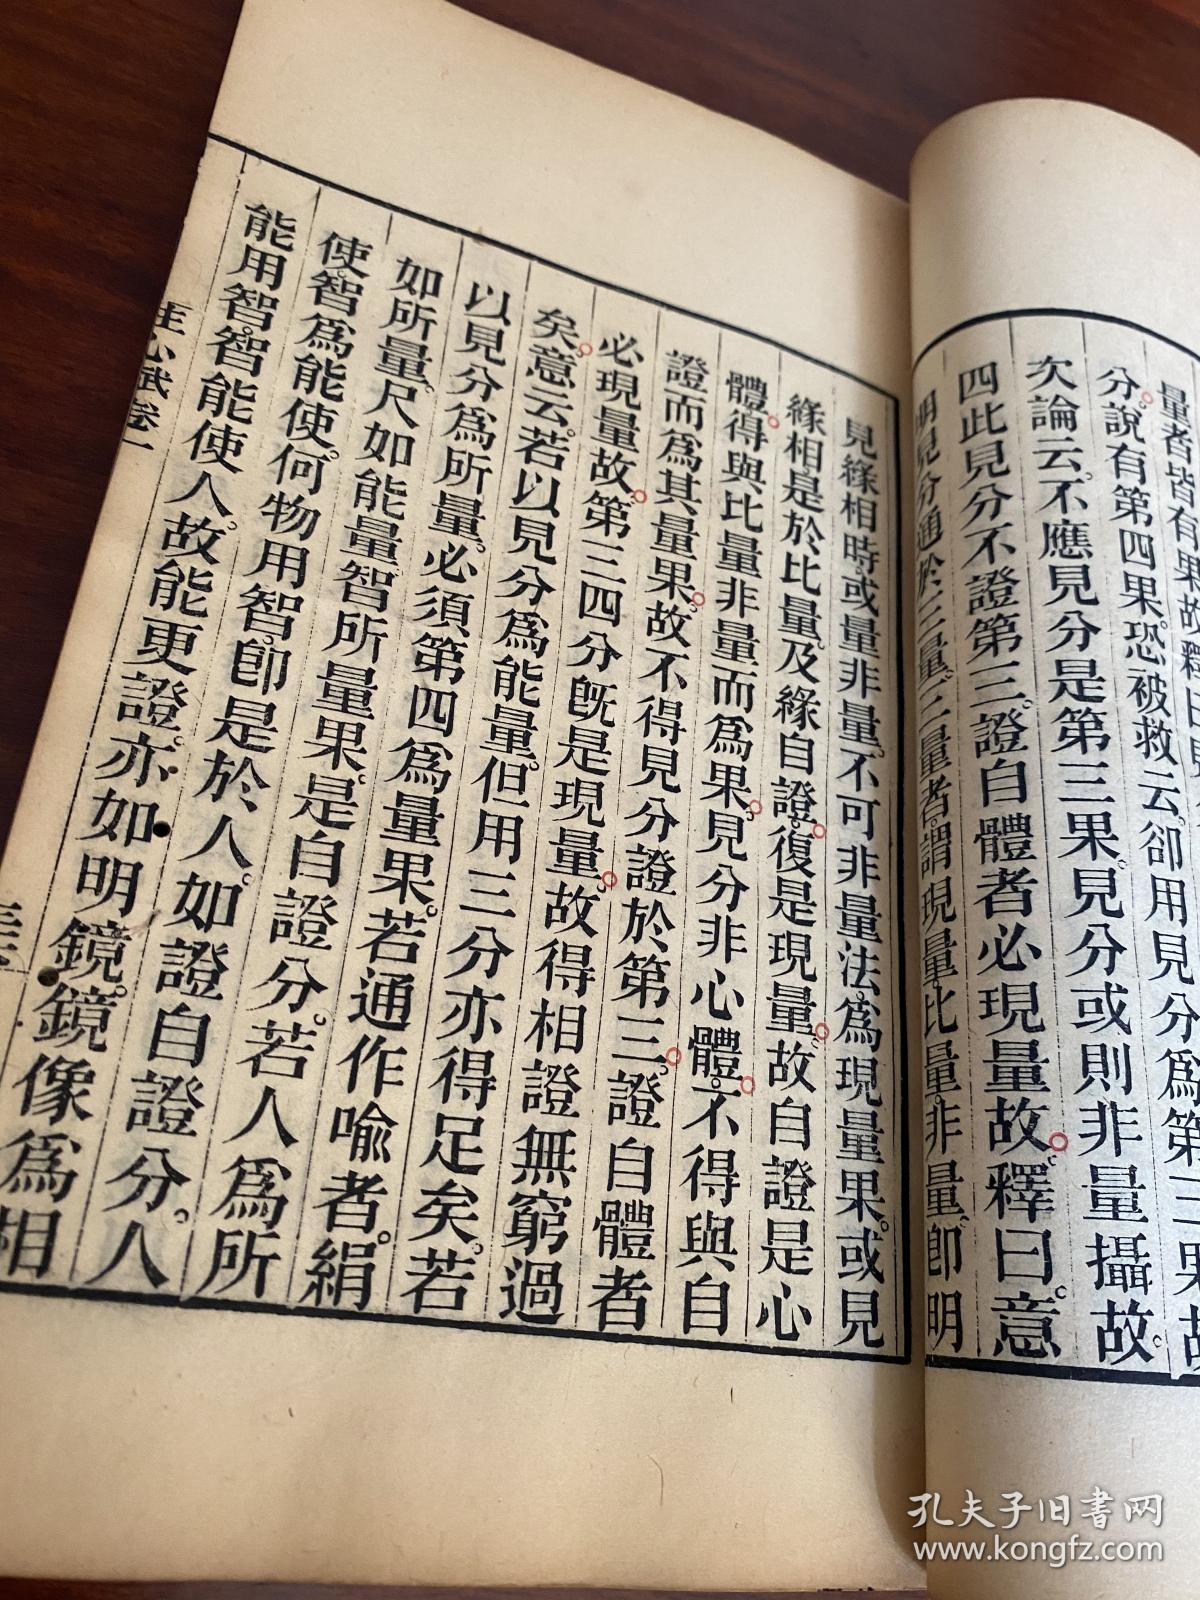 量者皆有果故釋曰見
分。說有第四果。恐被救云。卻用見分爲第三果故
次論云。不應見分是第三果。見分或則非量攝故。
四此見分不證第三。證自體者必現量故。釋曰。意
明見分通於三量。三量者。謂現量。比量。非量。卽明
見緣相時或量非量。不可非量法。爲現量果。或見
緣相。是於比量。及緣自證。復是現量。故自證是心
體。得與比量非量而爲果。見分非心體。不得與自
證而爲其量果。故不得見分證於第三。證自體者
必現量故。第三四分旣是現量。故得相證無窮過
矣。意云。若以見分爲能量。但用三分亦得足矣。若
以見分爲所量。必須第四爲量果。若通作喻者。絹
如所量。尺如能量。智所量果。是自證分。若人爲所
使。智爲能使。何物用智。卽是於人。如證自證分。人
能用智。智能使人。故能更證。亦如明鏡。鏡像爲相
註心賦卷一
孔夫子旧書网
www.kongfz.com